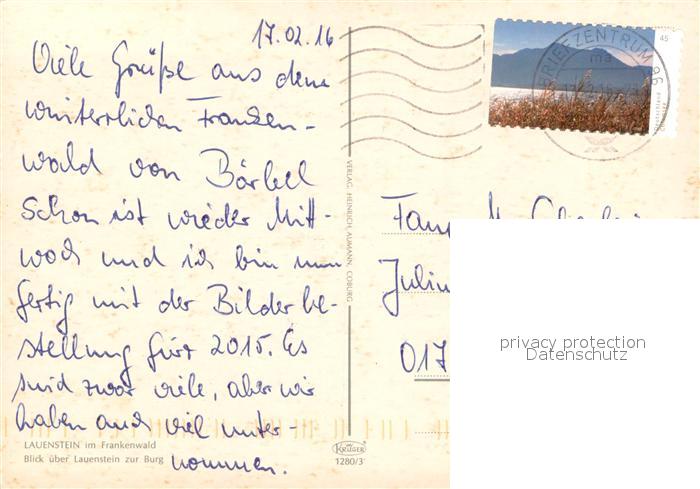 17.02.16
Viele Grüße aus dem
winterlichen Franken-
wald von Bärbel
Schon ist wieder Mitt-
woch und ich bin nun
fertig mit der Bilderbe-
stellung für 2015. Es
sind zwar viele, aber wir
haben auch viel unter-
nommen.
LAUENSTEIN im Frankenwald
Blick über Lauenstein zur Burg
VERLAG HEINRICH AUMANN, COBURG
KRÜGER
1280/3
45
BRIEFZENTRUM 96
ma
Fam.
017
privacy protection
Datenschutz